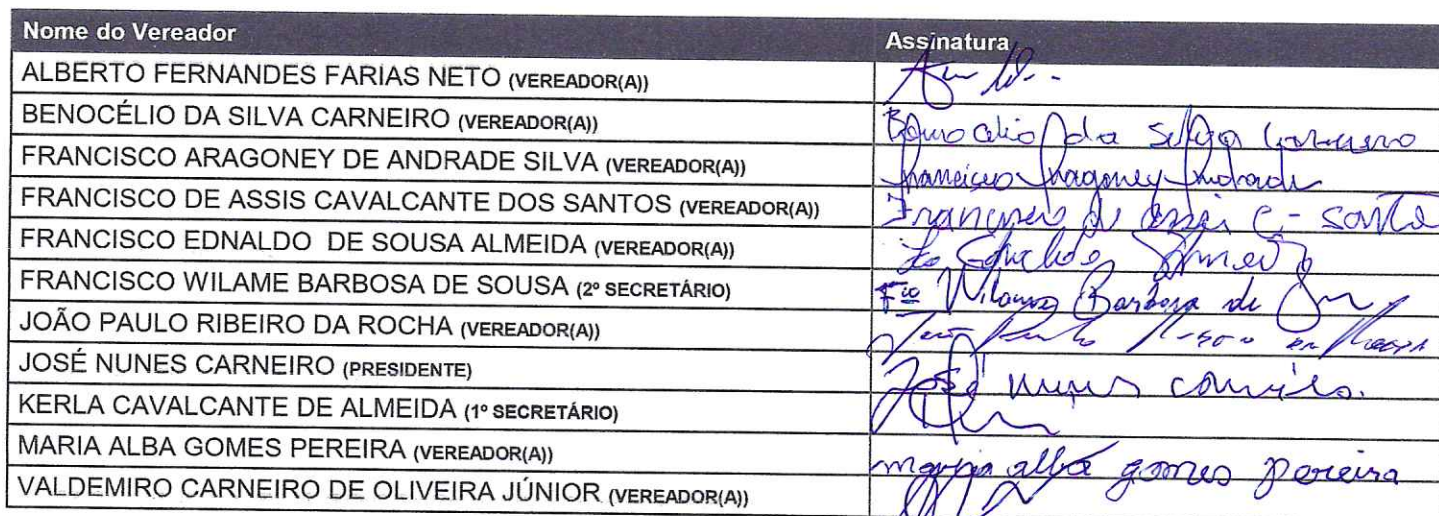 Nome do Vereador Assinatura
ALBERTO FERNANDES FARIAS NETO (VEREADOR(A))
BENOCÉLIO DA SILVA CARNEIRO (VEREADOR(A)) Benocelio da Silva Carneiro
FRANCISCO ARAGONEY DE ANDRADE SILVA (VEREADOR(A)) Francisco Aragoney Andrade
FRANCISCO DE ASSIS CAVALCANTE DOS SANTOS (VEREADOR(A)) Francisco de Assis C - Santo
FRANCISCO EDNALDO DE SOUSA ALMEIDA (VEREADOR(A))
FRANCISCO WILAME BARBOSA DE SOUSA (2º SECRETÁRIO) Fco Wilame Barbosa de
JOÃO PAULO RIBEIRO DA ROCHA (VEREADOR(A)) João Paulo
JOSÉ NUNES CARNEIRO (PRESIDENTE) José nunes carneiro.
KERLA CAVALCANTE DE ALMEIDA (1º SECRETÁRIO)
MARIA ALBA GOMES PEREIRA (VEREADOR(A)) maria alba gomes pereira
VALDEMIRO CARNEIRO DE OLIVEIRA JÚNIOR (VEREADOR(A))